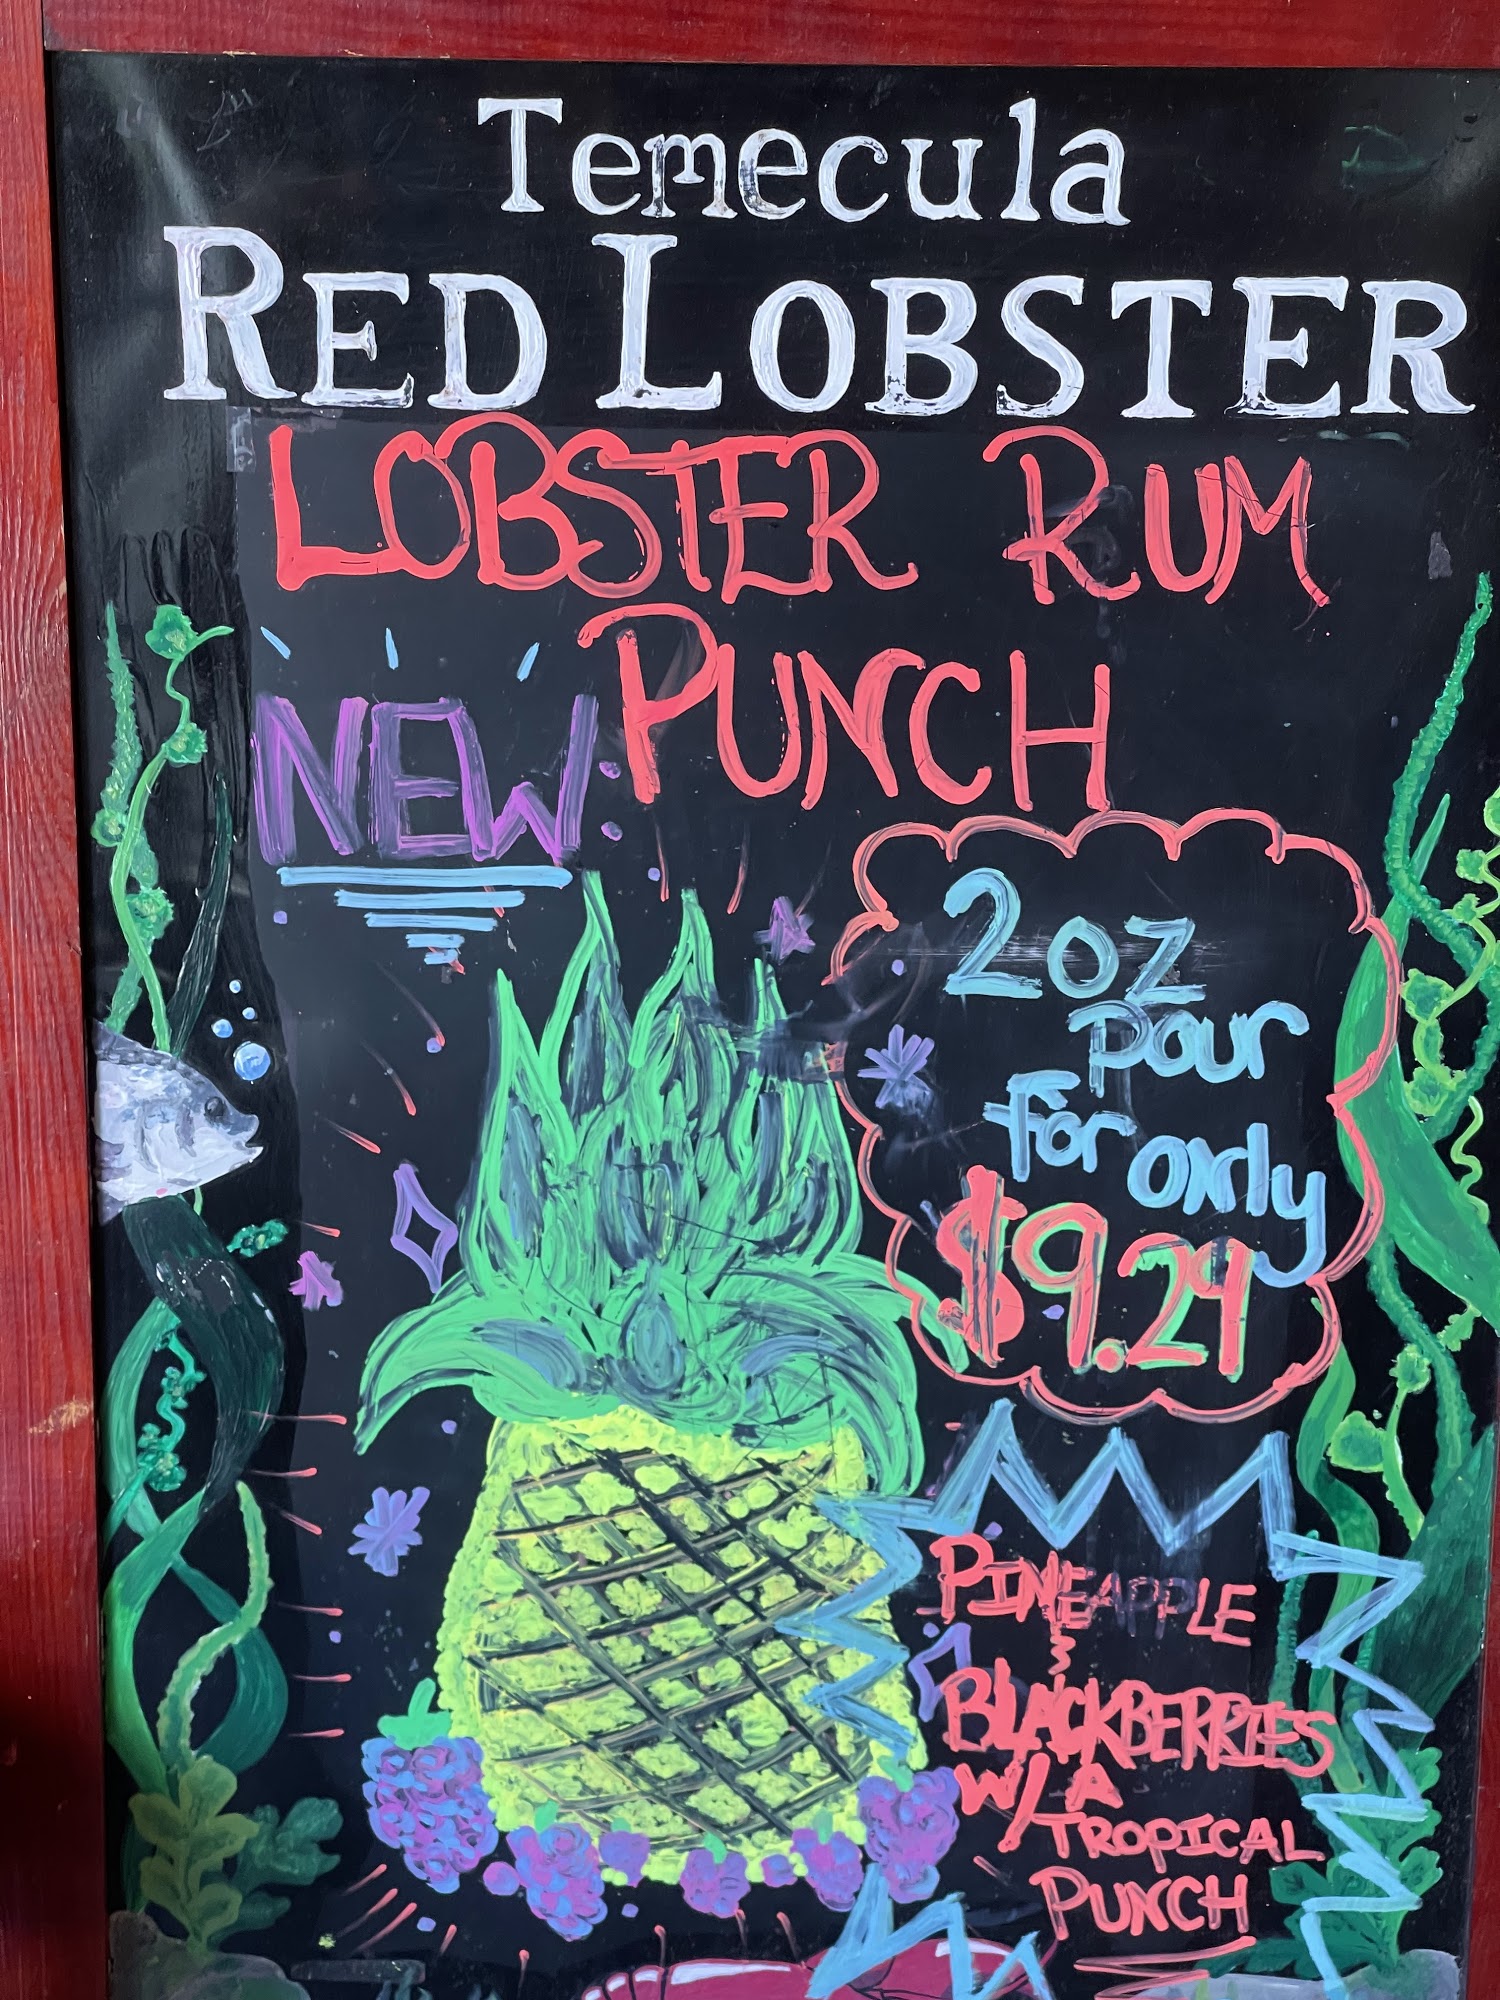 Temecula
RED LOBSTER
LOBSTER RUM
PUNCH
NEW
2oz
Pour
For only
$9.29
PINEAPPLE
&
BLACKBERRIES
W/ A
TROPICAL
PUNCH